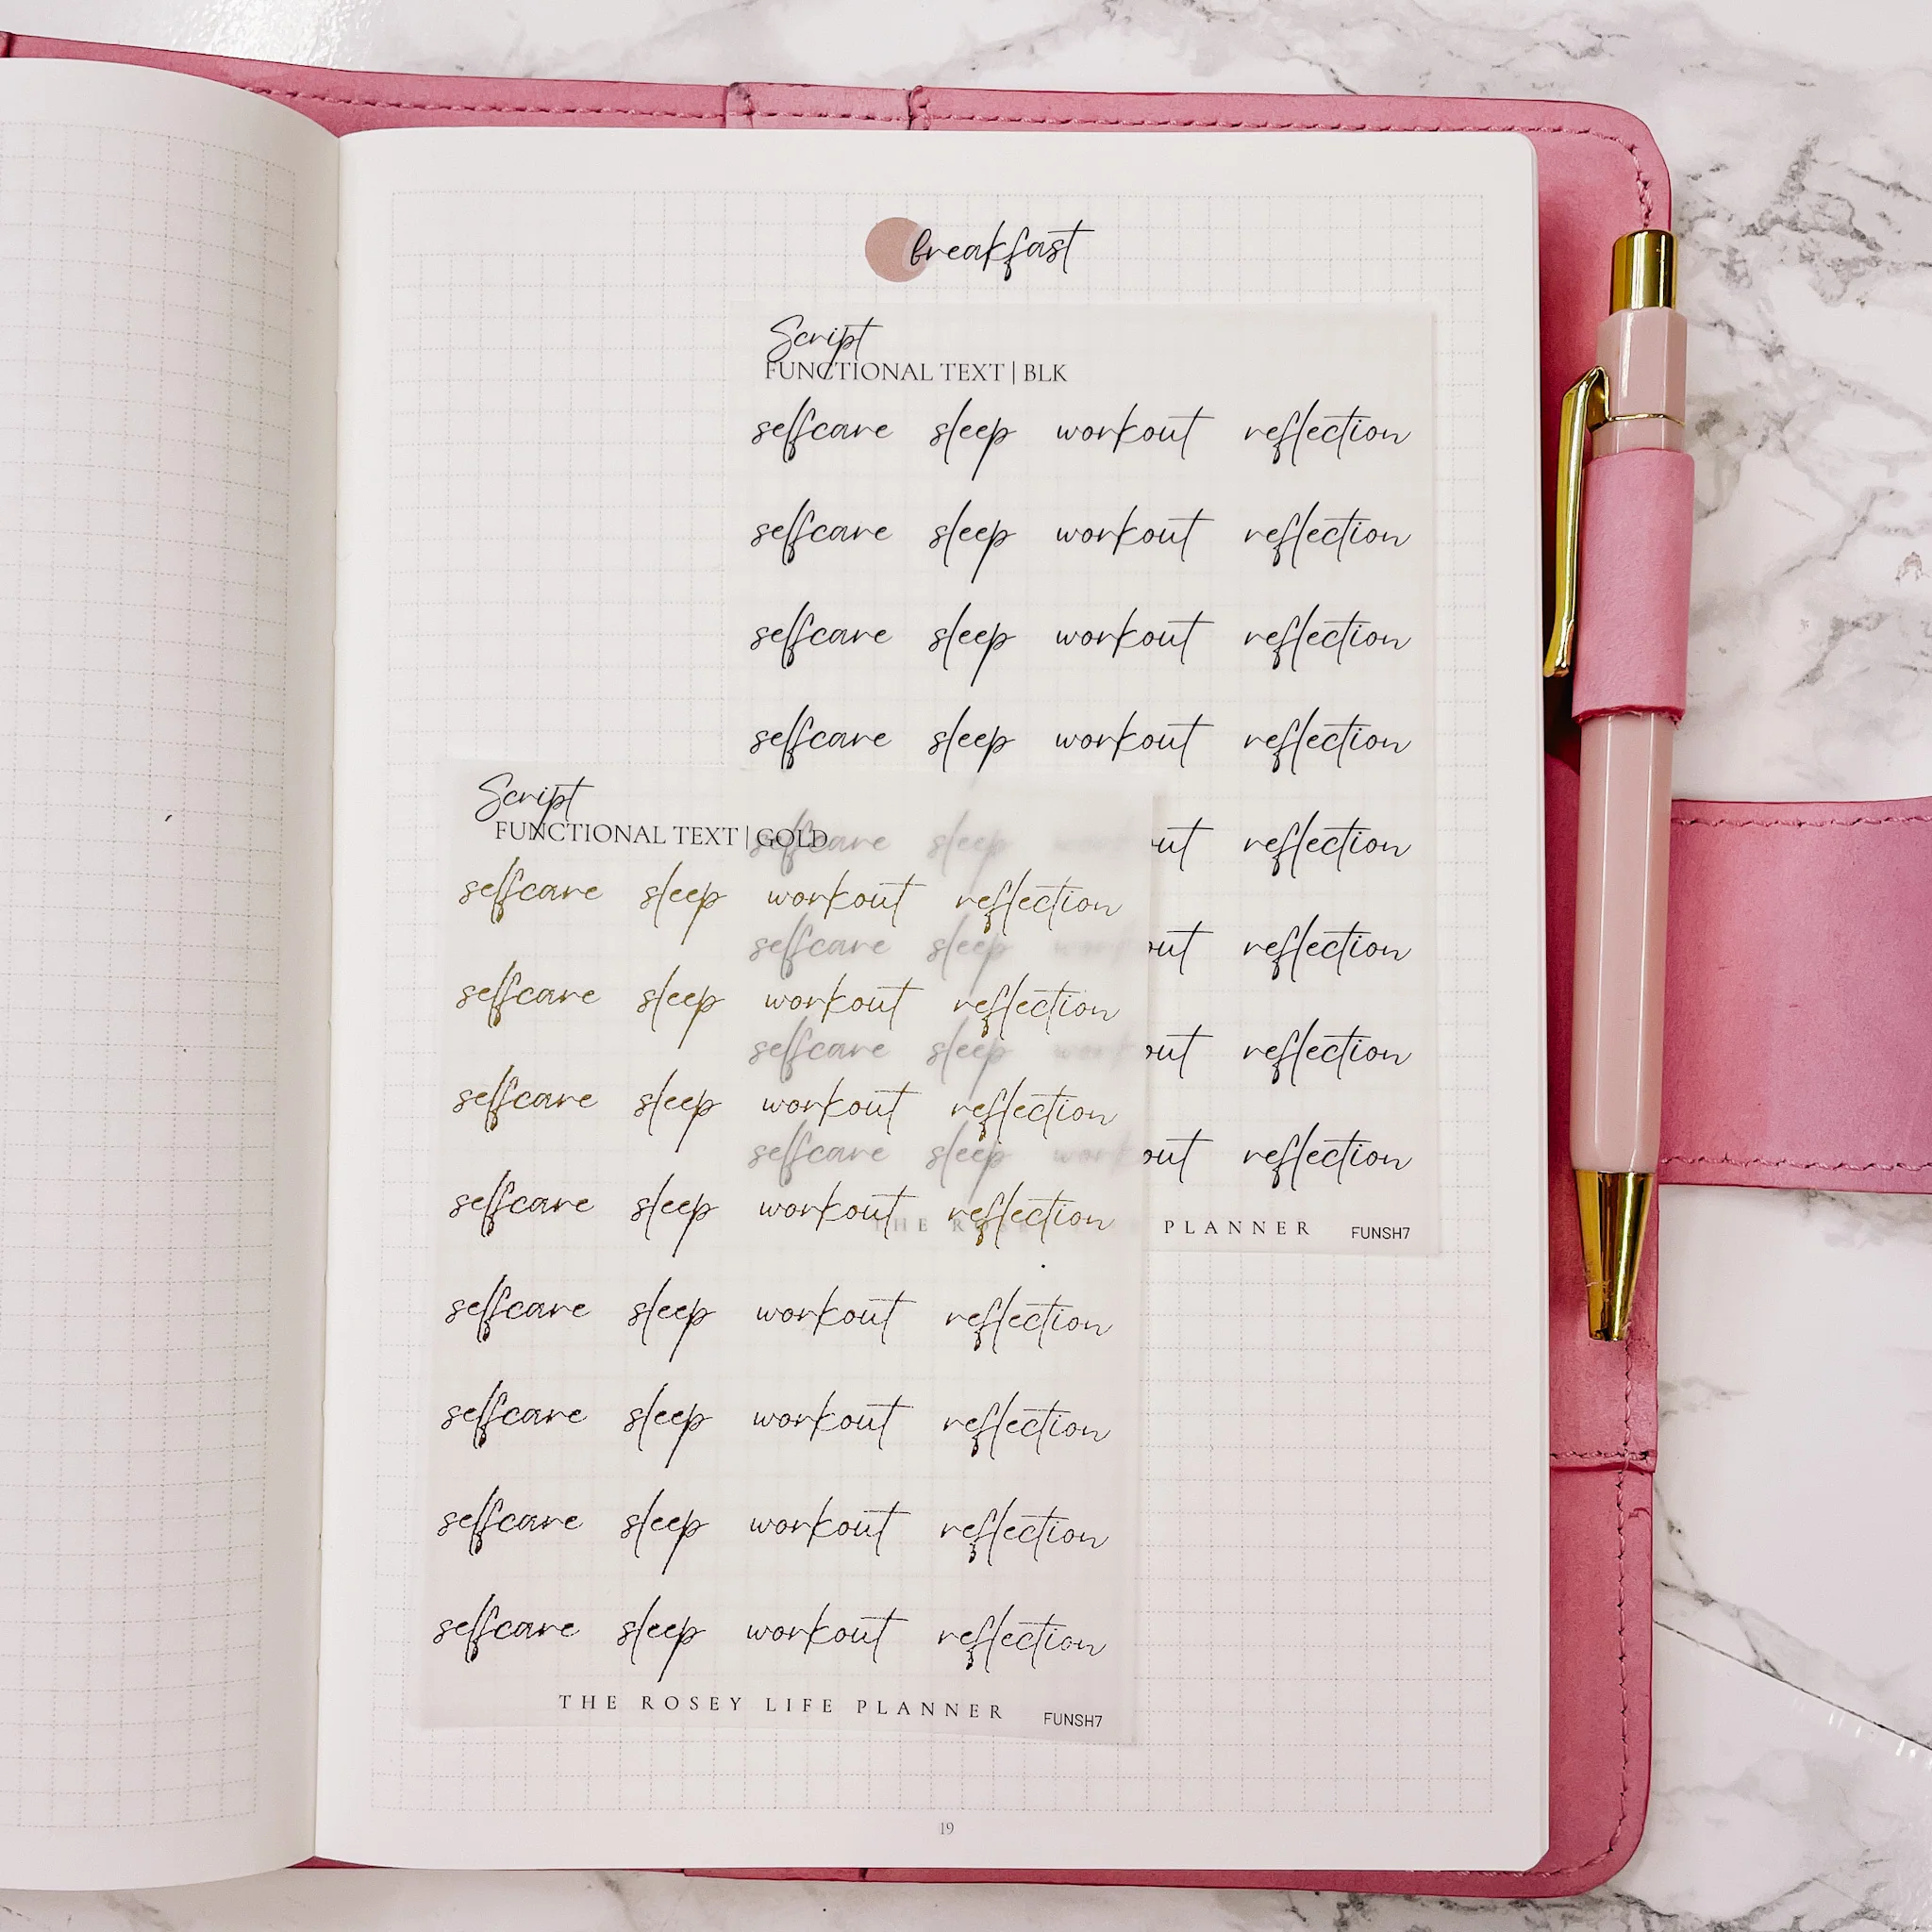 breakfast
Script
FUNCTIONAL TEXT | BLK
selfcare sleep workout reflection
selfcare sleep workout reflection
selfcare sleep workout reflection
selfcare sleep workout reflection
selfcare sleep work out reflection
selfcare sleep work out reflection
selfcare sleep work out reflection
selfcare sleep work out reflection
THE ROSE PLANNER FUNSH7
Script
FUNCTIONAL TEXT | GOLD
selfcare sleep workout reflection
selfcare sleep workout reflection
selfcare sleep workout reflection
selfcare sleep workout reflection
selfcare sleep workout reflection
selfcare sleep workout reflection
selfcare sleep workout reflection
selfcare sleep workout reflection
THE ROSEY LIFE PLANNER FUNSH7
19